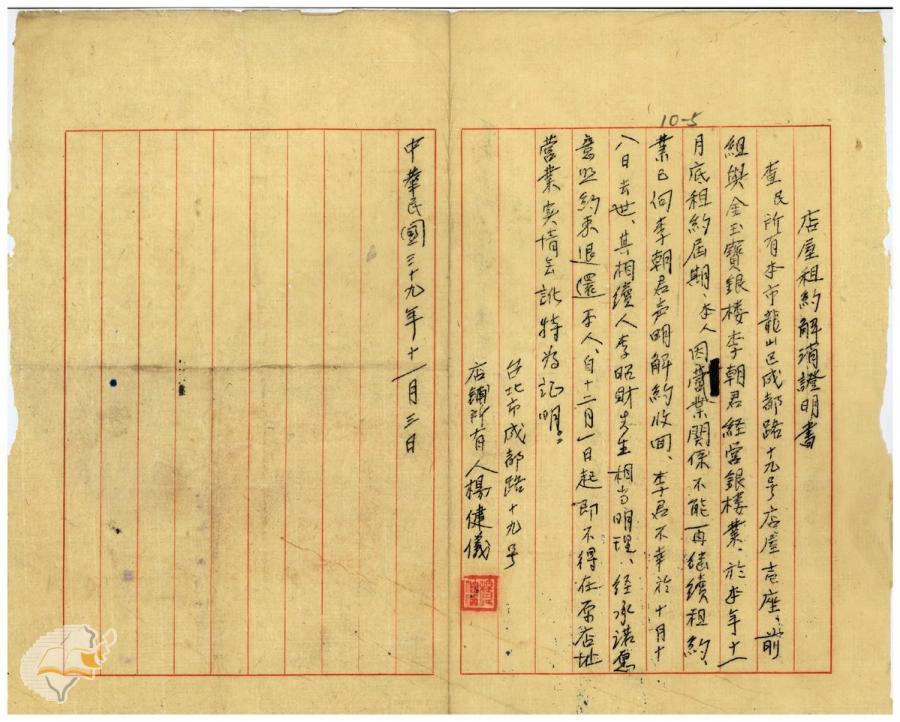 10-5
店屋租約解消證明書
查民所有本市龍山区成都路十九号店屋壱座、前
組與金玉寶銀楼李朝君経営銀楼業、於本年十一
月底租約屆期、本人因營業関係不能再継續租約、
業已向李朝君声明解約收回、李君不幸於十月十
八日去世、其相續人李昭財先生相当明理、経承諾愿
意照約束退還本人、自十二月一日起即不得在原店址
営業実情無訛特為証明。
台北市成都路十九号
店鋪所有人楊健儀
中華民國三十九年十一月三日